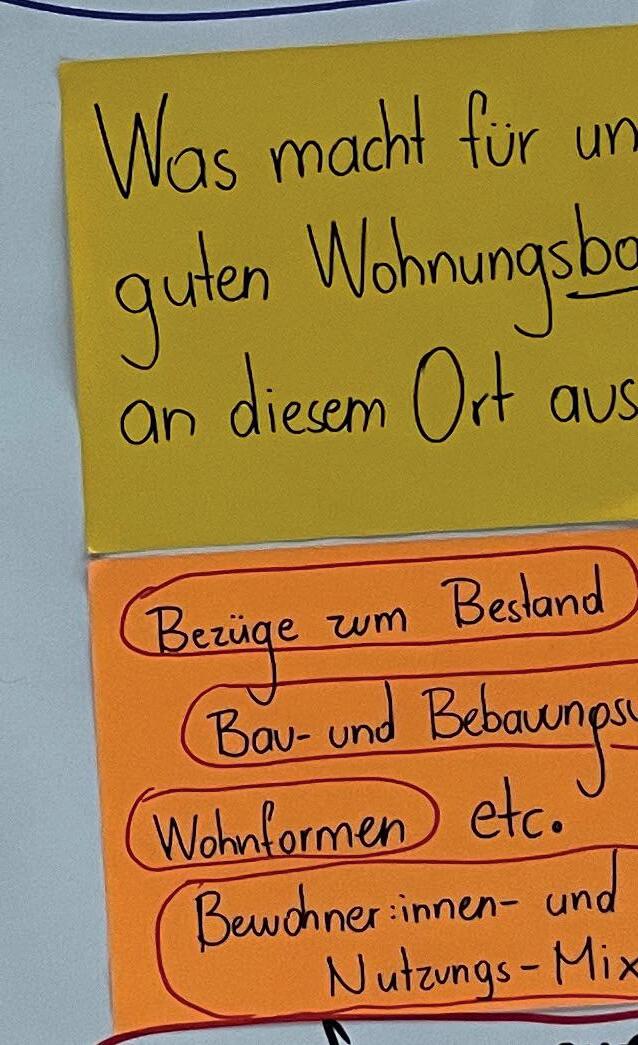 Was macht für un
guten Wohnungsba
an diesem Ort aus
Bezüge zum Bestand
Bau- und Bebauungs
Wohnformen etc.
Bewohner:innen- und
Nutzungs-Mix